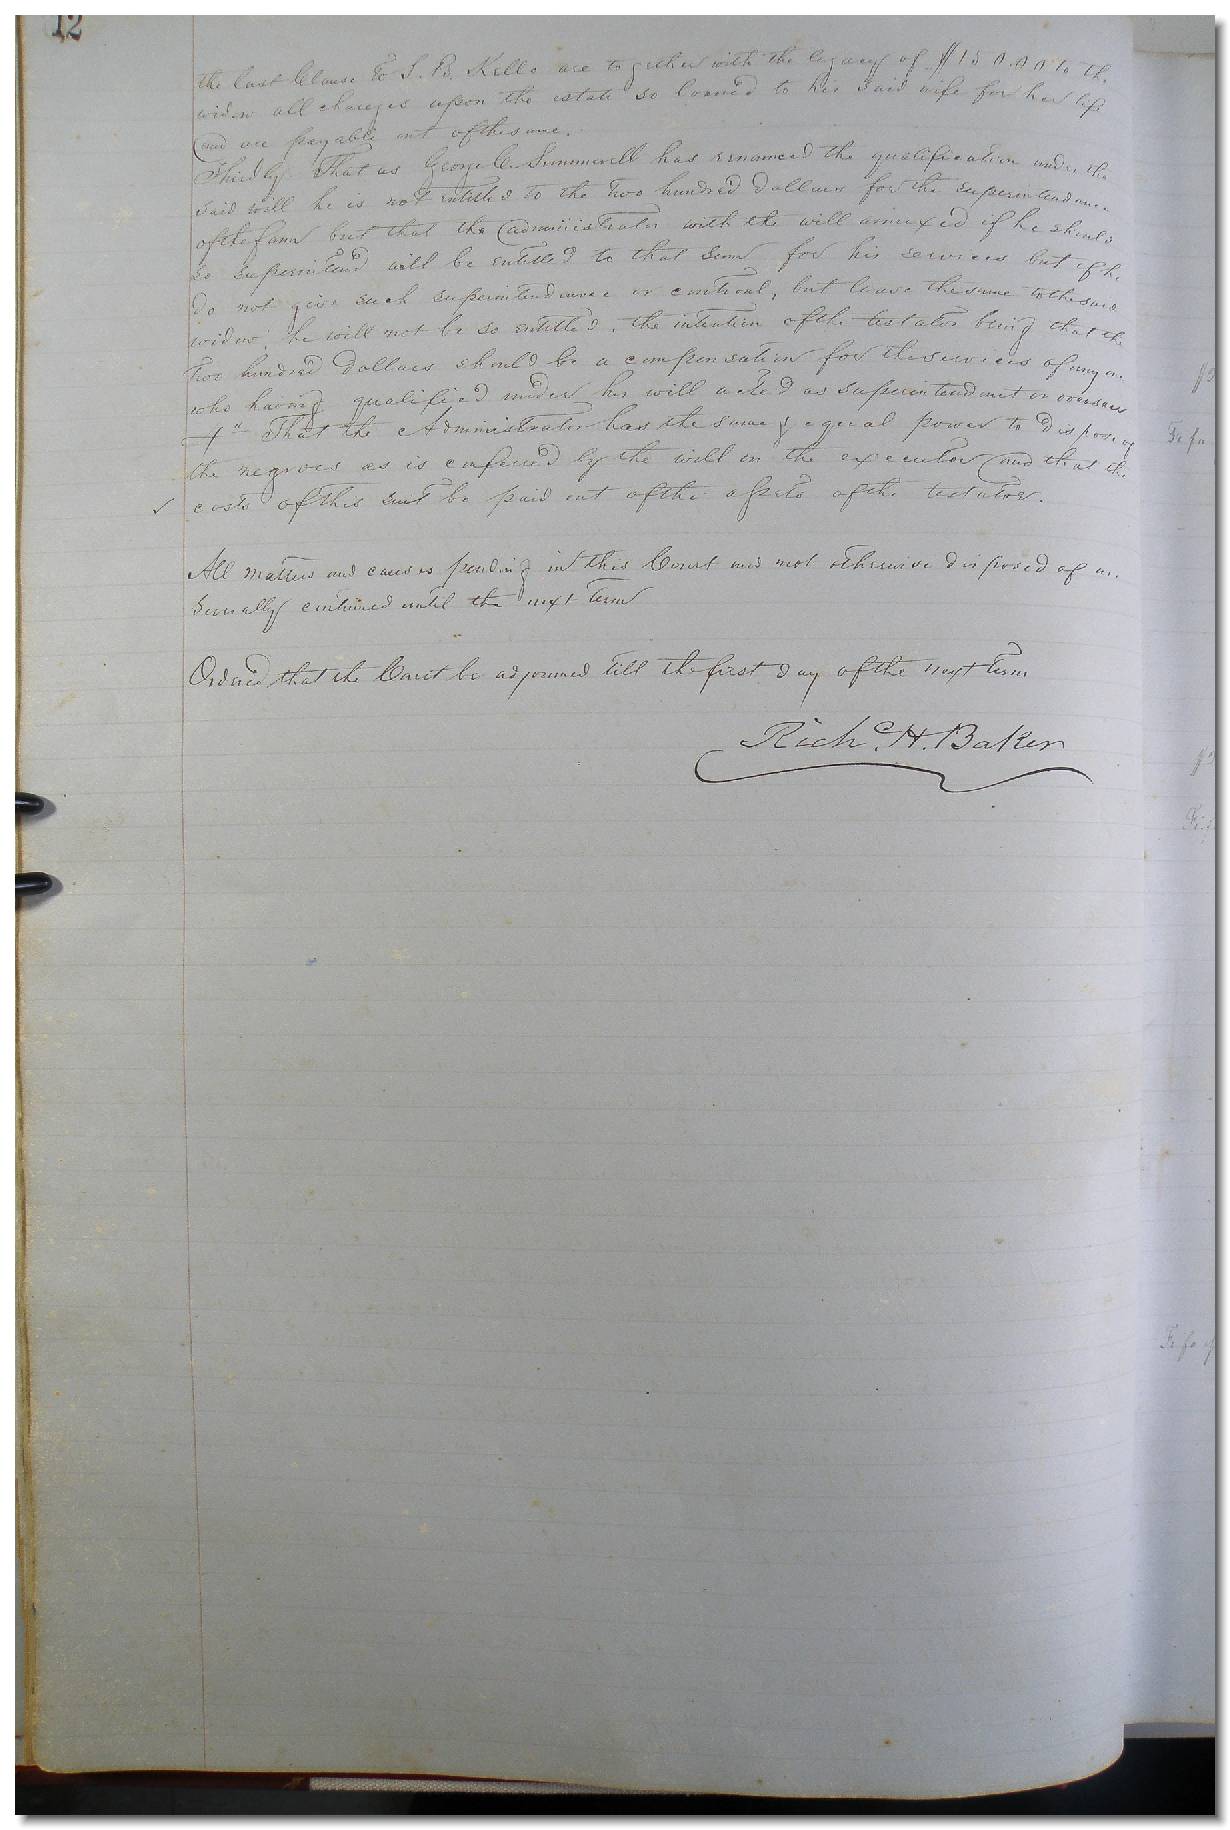 12
the last Clause to S. B. Kello are together with the legacy of $150.00 to the
widow all charges upon the estate so loaned to his said wife for her life
and are payable out of the same.
Thirdly That as George C. Summerell has renounced the qualification under the
said will he is not entitled to the two hundred dollars for the superintendance
of the farm but that the administrator with the will annexed if he should
so superintend will be entitled to that sum for his services but if he
do not give such superintendance or control, but leave the same to the said
widow, he will not be so entitled, the intention of the testator being that the
two hundred dollars should be a compensation for the services of any one
who having qualified under his will acted as superintendent or overseer
4th That the Administrator has the same & equal power to dispose of
the negroes as is conferred by the will on the executor and that the
✓ costs of this suit be paid out of the assets of the testator.
All matters and causes pending in this Court and not otherwise disposed of are
severally continued until the next term
Ordered that the Court be adjourned till the first day of the next term
Richd. H. Baker
Fi fa
Fi fa